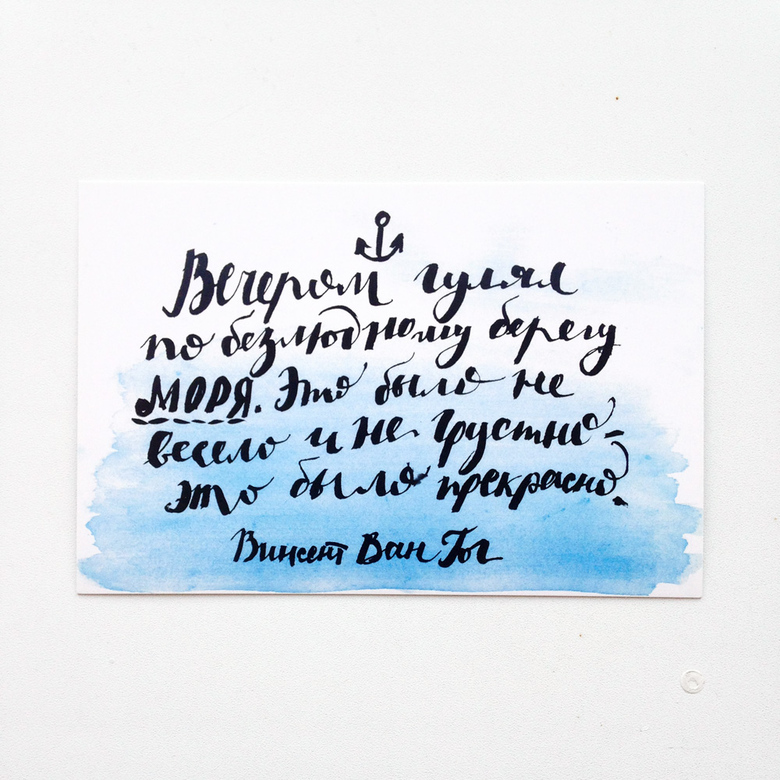 Вечером гулял
по безлюдному берегу
МОРЯ. Это было не
весело и не грустно -
это было прекрасно.
Винсент Ван Гог